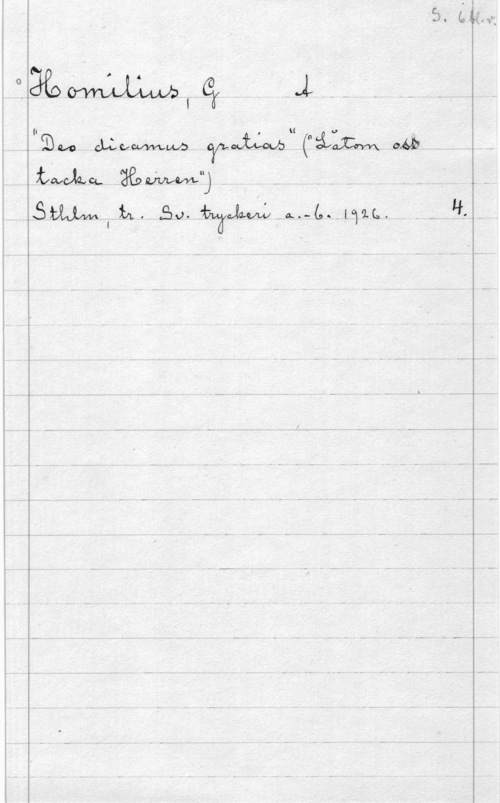 S. 6 bl.r.
Homilius, G A
"Deo dicamus gratias" ("Låtom oss
tacka Herren")
Sthlm, tr. Sv. tryckeri a.-b. 1926. 4.